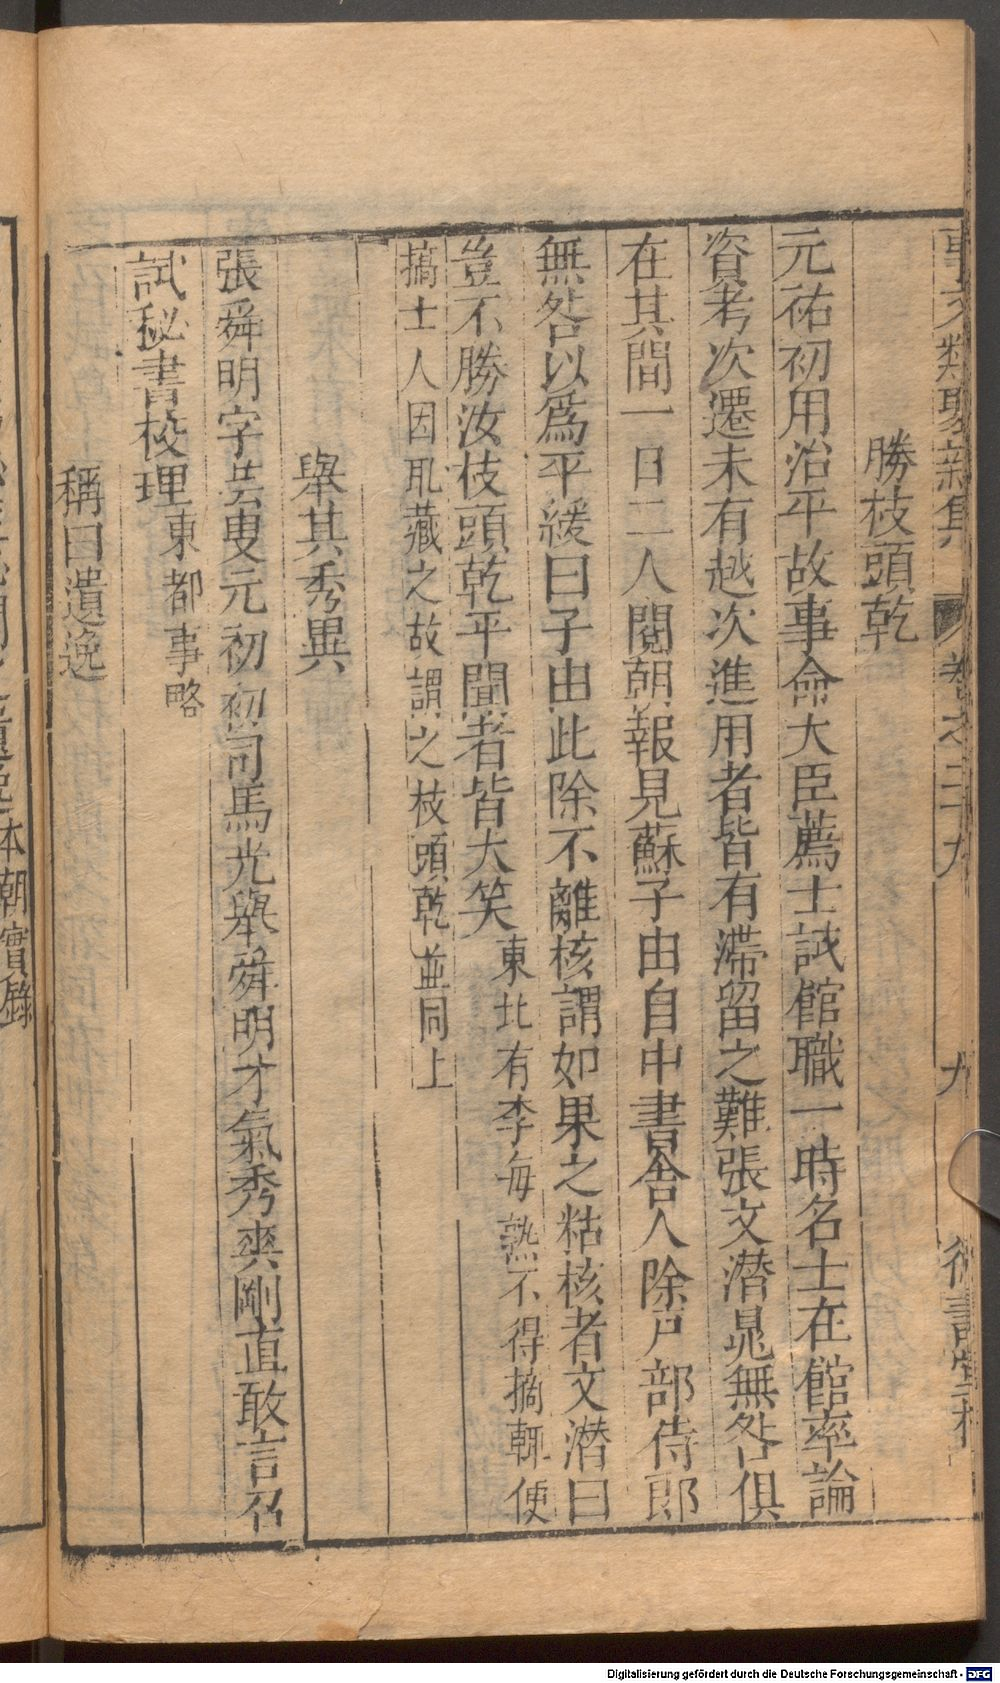 事文類聚新集 卷之三十九 九
勝枝頭乾
元祐初用治平故事命大臣薦士試館職一時名士在館率論
資考次遷未有越次進用者皆有滯留之難張文潛晁無咎俱
在其間一日二人閱朝報見蘇子由自中書舍人除戶部侍郎
無咎以爲平緩曰子由此除不離核謂如果之粘核者文潛曰
豈不勝汝枝頭乾平聞者皆大笑東北有李每熟不得摘輒便
搞士人因乿藏之故謂之枝頭乾並同上
舉其秀異
張舜明字芸叟元初初司馬光舉舜明才氣秀爽剛直敢言召
試秘書校理東都事略
稱曰遺逸
本朝實錄
Digitalisierung gefördert durch die Deutsche Forschungsgemeinschaft - DFG